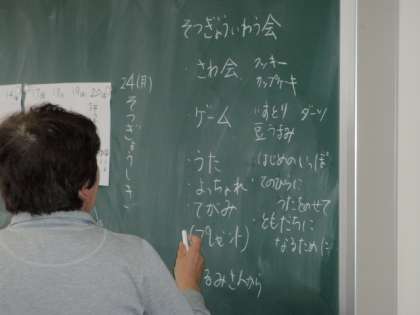 そつぎょういわう会
・さわ会 クッキー
カップケーキ
・ゲーム いすとり ダーツ
豆つまみ
・うた はじめのいっぽ
・よっちょれ ・てのひらに
・てがみ つたをのせて
(プレゼント) ・ともだちに
なるために
るみさんから
24(月)
そつぎょうしき